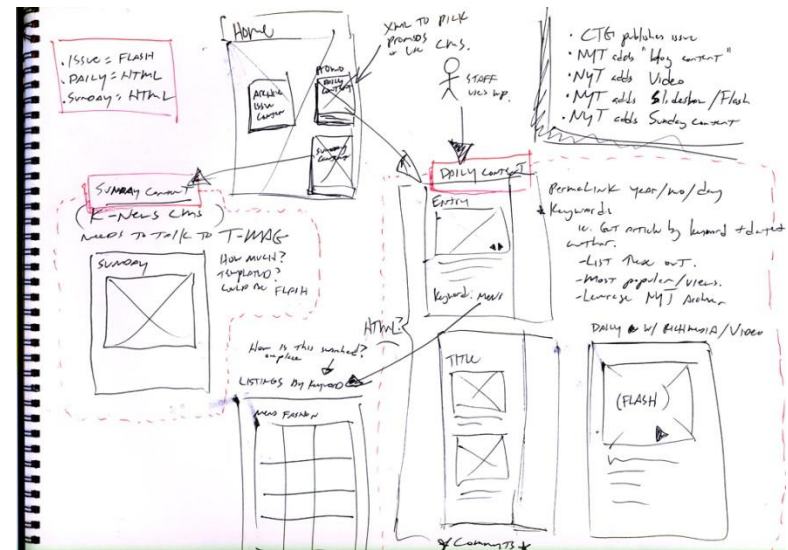 • ISSUE = FLASH
• DAILY = HTML
• SUNDAY = HTML
Home
XML TO PICK
PROMOS
or use CMS.
PROMO
DAILY
CONTENT
ARCHIVE
ISSUE
CONTENT
SUNDAY
CONTENT
STAFF
USES WP.
• CTG publishes issue
• NYT adds "blog content"
• NYT adds Video
• NYT adds Slideshow/Flash
• NYT adds Sunday Content
SUNDAY CONTENT
(K-News CMS)
NEEDS TO TALK TO T-MAG
SUNDAY
HOW MUCH?
TEMPLATED?
COULD BE FLASH
DAILY CONTENT
ENTRY
Keyword: MENS
PermaLink year/mo/day
Keywords
ie. Get article by keyword +
author.
- LIST these out.
- Most popular/views.
- Leverage NYT
HTML?
How is this
LISTINGS By Keyword
MENS FASHION
TITLE
DAILY W/ RICHMEDIA/VIDEO
(FLASH)
* COMMENTS *